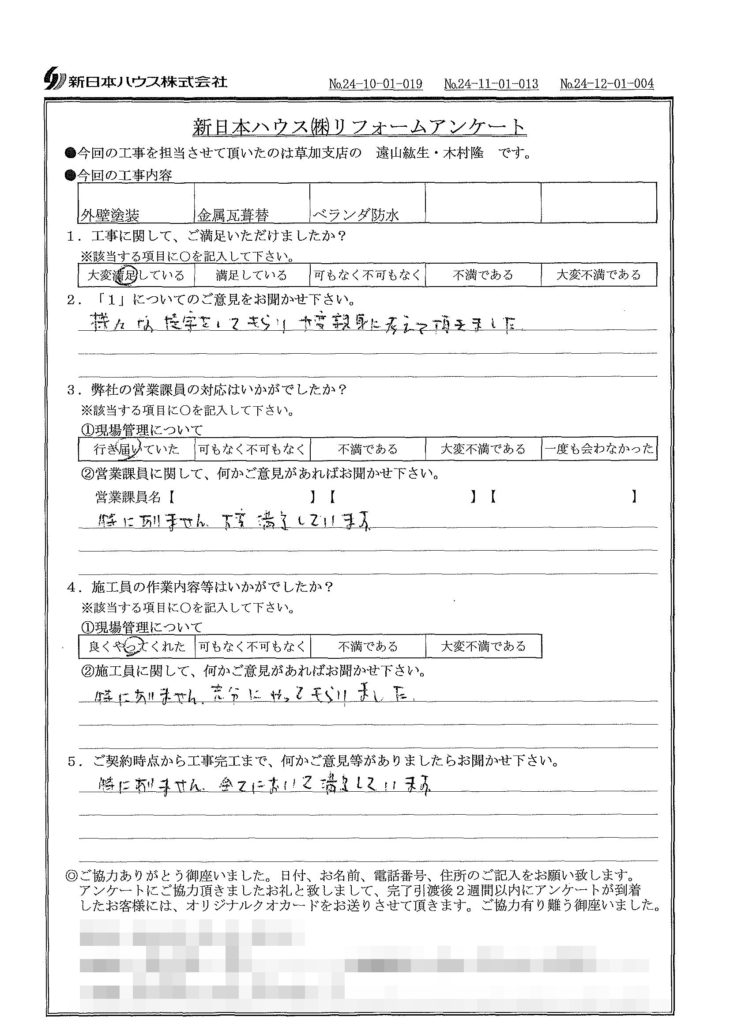 新日本ハウス株式会社 №24-10-01-019 №24-11-01-013 №24-12-01-004
新日本ハウス㈱リフォームアンケート
●今回の工事を担当させて頂いたのは草加支店の 遠山紘生・木村隆 です。
●今回の工事内容
外壁塗装 金属瓦葺替 ベランダ防水
1．工事に関して、ご満足いただけましたか？
※該当する項目に○を記入して下さい。
大変満足している 満足している 可もなく不可もなく 不満である 大変不満である
2．「1」についてのご意見をお聞かせ下さい。
様々な提案をしてもらい大変親身に考えて頂きました
3．弊社の営業課員の対応はいかがでしたか？
※該当する項目に○を記入して下さい。
①現場管理について
行き届いていた 可もなく不可もなく 不満である 大変不満である 一度も会わなかった
②営業課員に関して、何かご意見があればお聞かせ下さい。
営業課員名【 】【 】【 】
特にありません、大変満足しています
4．施工員の作業内容等はいかがでしたか？
※該当する項目に○を記入して下さい。
①現場管理について
良くやってくれた 可もなく不可もなく 不満である 大変不満である
②施工員に関して、何かご意見があればお聞かせ下さい。
特にありません、充分にやってもらいました。
5．ご契約時点から工事完工まで、何かご意見等がありましたらお聞かせ下さい。
特にありません、全てにおいて満足しています
◎ご協力ありがとう御座いました。日付、お名前、電話番号、住所のご記入をお願い致します。
アンケートにご協力頂きましたお礼と致しまして、完了引渡後２週間以内にアンケートが到着
したお客様には、オリジナルクオカードをお送りさせて頂きます。ご協力有り難う御座いました。